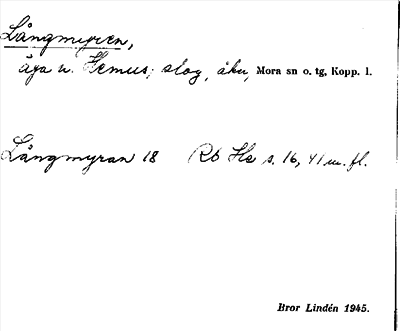 Långmyren,
äga u. Hemus; slog, åker, Mora sn o. tg, Kopp. l.
Långmyran 18 Rb Hs s. 16, 41 m. fl.
Bror Lindén 1945.